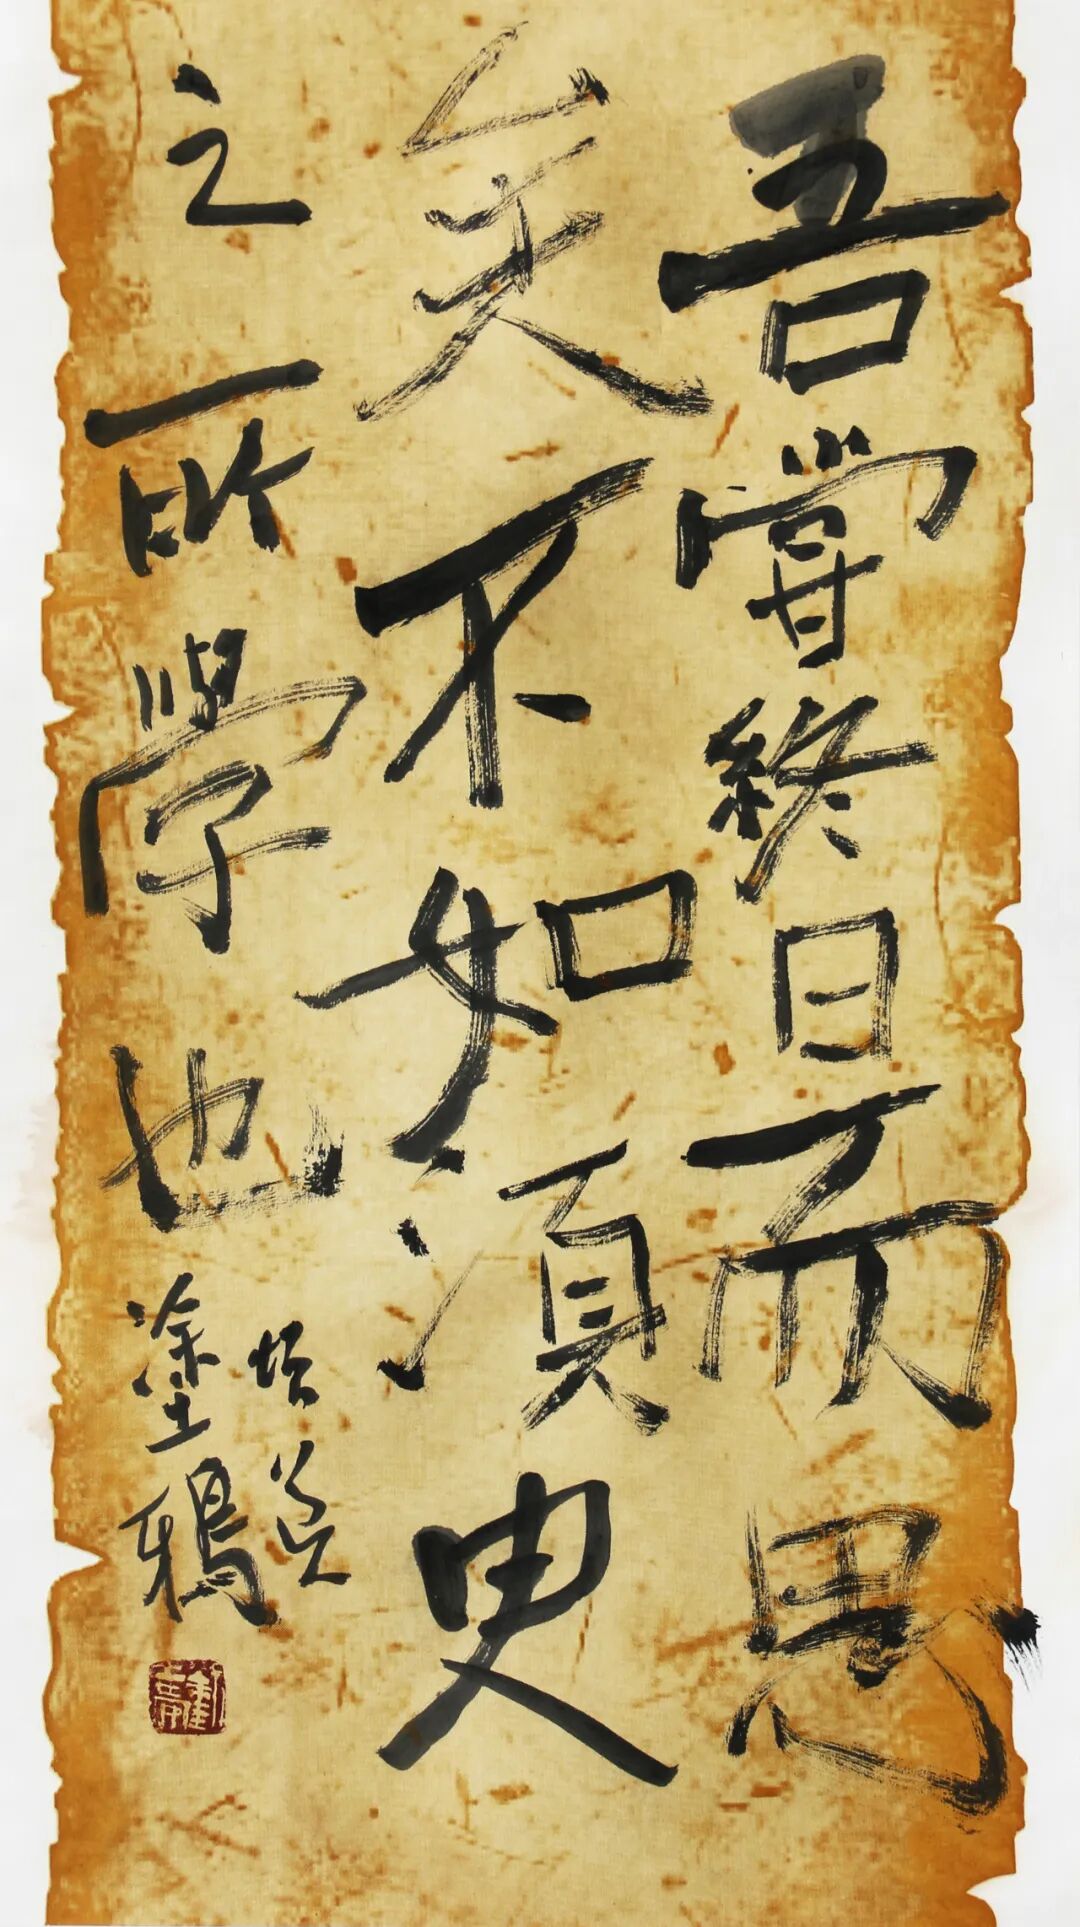 吾嘗終日而思
矣不如須臾
之所學也
塗鴉